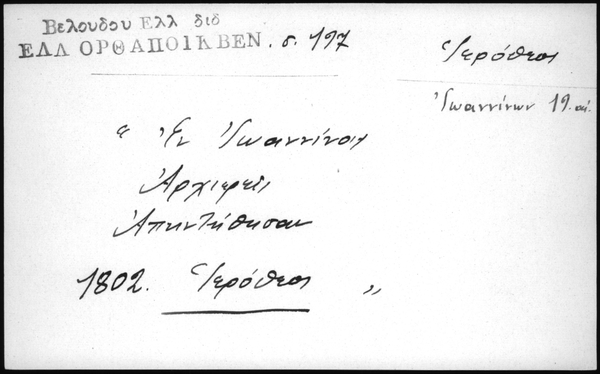 Βελουδου Ελλ διδ
ΕΛΛ ΟΡΘΑΠΟΙΚΒΕΝ. σ. 197
Ἱερόθεος
Ἰωαννίνων 19. αἰ.
" Ἐν Ἰωαννίνοις
Ἀρχιερεῖς
Ἀπηντήθησαν
1802. Ἱερόθεος "